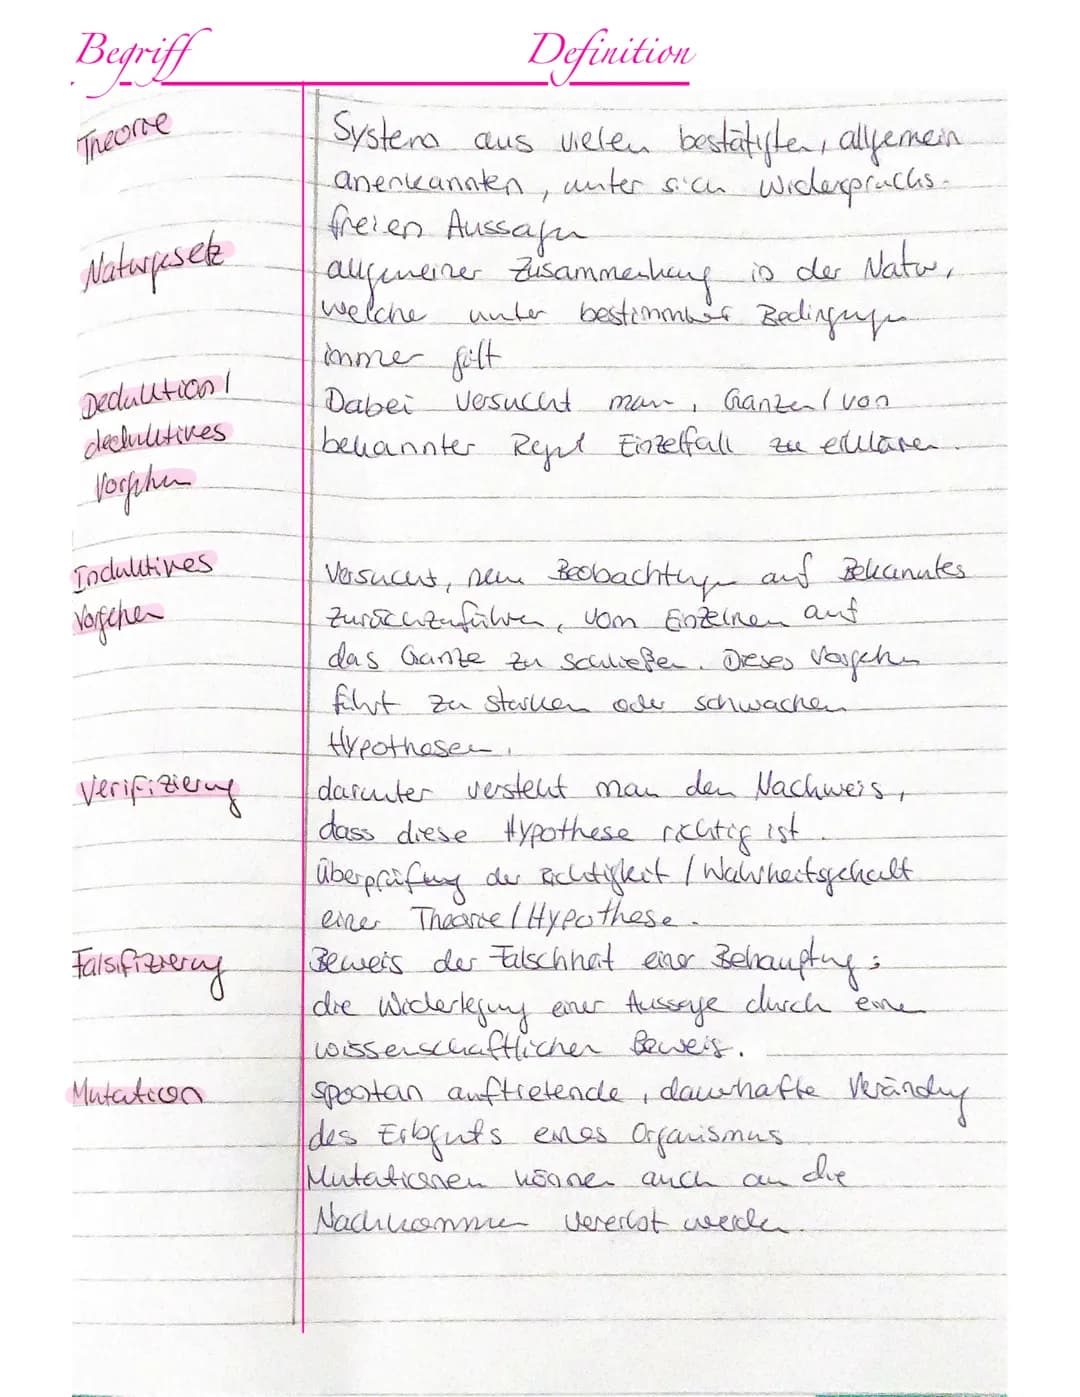 Begriff Definition
Theorie System aus vielen bestätigten, allgemein
anerkannten, unter sich Widerspruchs-
freien Aussagen
Naturgesetz allgemeiner Zusammenhang in der Natur,
welche unter bestimmten Bedingungen
immer gilt
Deduktion / Dabei versucht man, Ganzen / von
deduktives bekannter Regel Einzelfall zu erklären.
Vorgehen
Induktives Versucht, neue Beobachtungen auf Bekanntes
Vorgehen zurückzuführen, vom Einzelnen auf
das Ganze zu schließen. Dieses Vorgehen
führt zu starken oder schwachen
Hypothesen.
Verifizierung darunter versteht man den Nachweis,
dass diese Hypothese richtig ist.
Überprüfung der Richtigkeit / Wahrheitsgehalt
einer Theorie / Hypothese.
Falsifizierung Beweis der Falschheit einer Behauptung;
die Widerlegung einer Aussage durch eine
wissenschaftlichen Beweis.
Mutation spontan auftretende, dauerhafte Veränderung
des Erbguts eines Organismus
Mutationen können auch an die
Nachkommen vererbt werden.